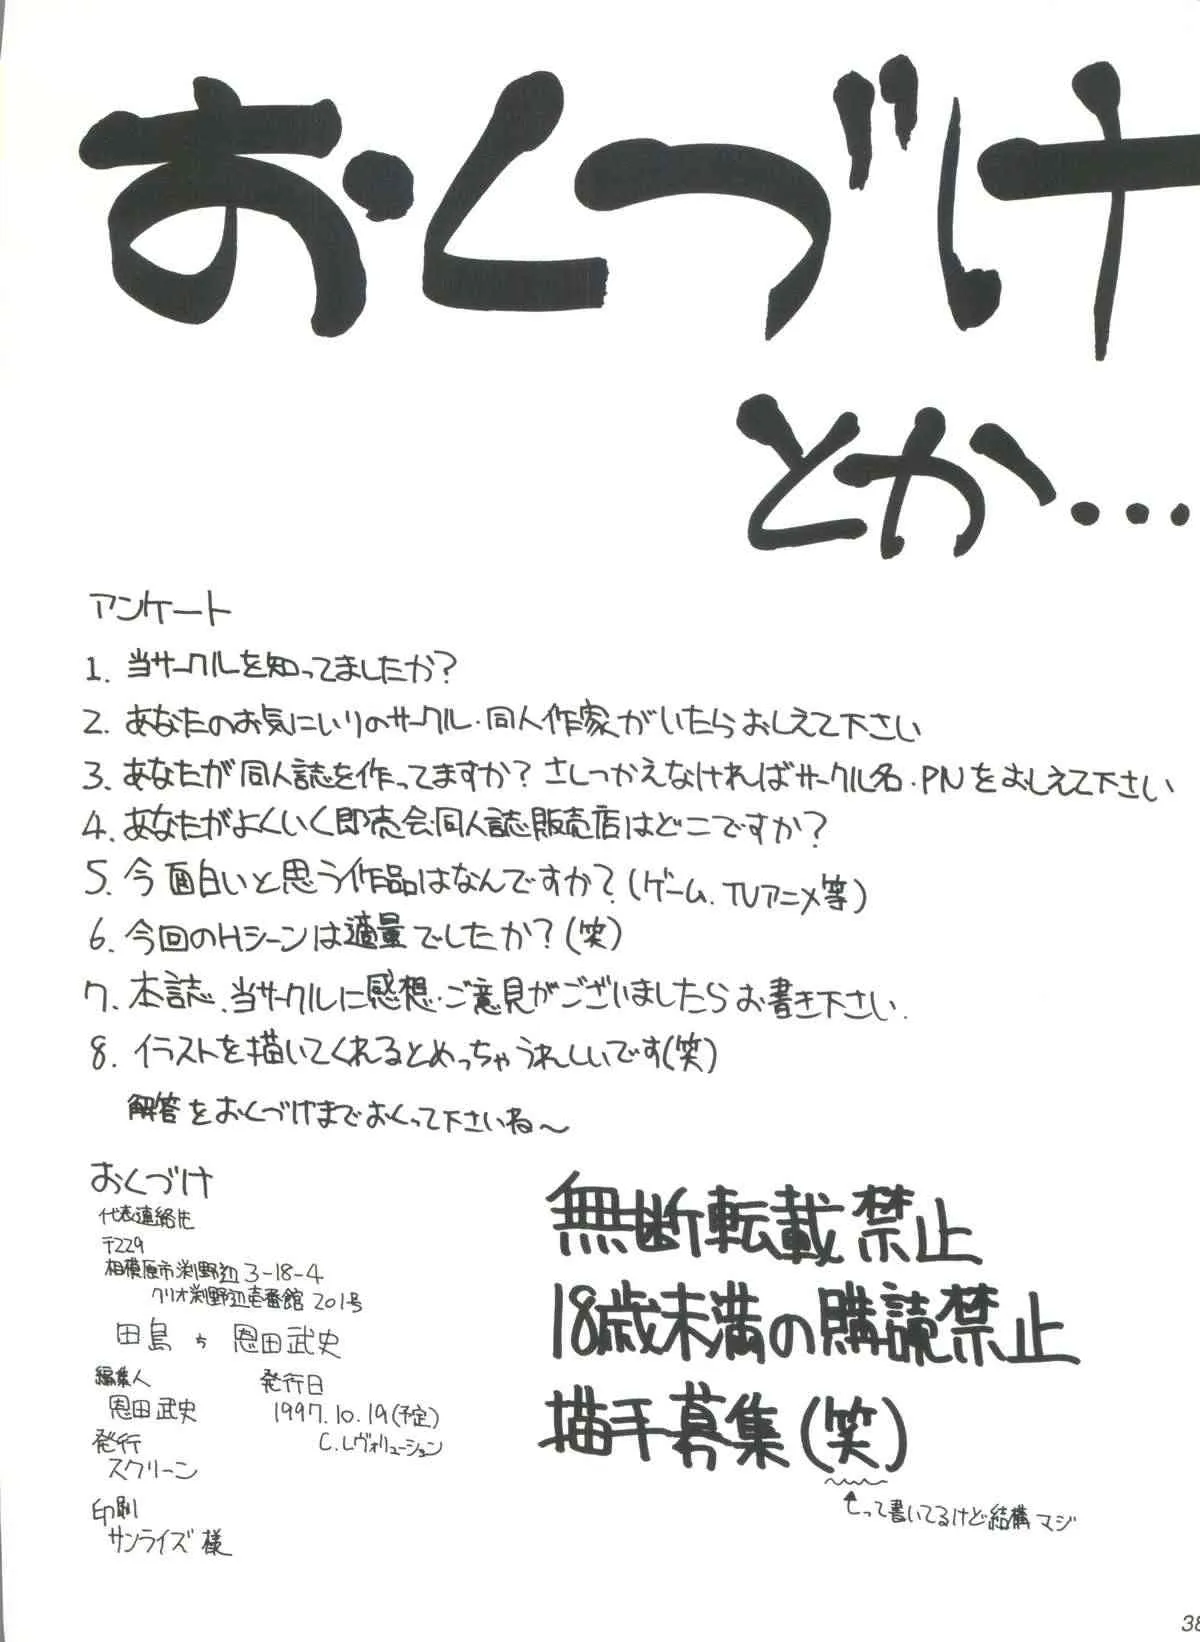 おくづけ
とか...
アンケート
1. 当サークルを知ってましたか?
2. あなたのお気にいりのサークル・同人作家がいたらおしえて下さい
3. あなたが同人誌を作ってますか? さしつかえなければサークル名・PNをおしえて下さい
4. あなたがよくいく即売会・同人誌販売店はどこですか?
5. 今面白いと思う作品はなんですか?(ゲーム、TVアニメ等)
6. 今回のHシーンは適量でしたか?(笑)
7. 本誌、当サークルに感想・ご意見がございましたらお書き下さい.
8. イラストを描いてくれるとめっちゃうれしいです(笑)
解答をおくづけまでおくって下さいね～
おくづけ
代表連絡先
〒229
相模原市渕野辺3-18-4
クリオ渕野辺壱番館201号
田島 方 恩田武史
編集人
恩田武史
発行日
1997.10.19(予定)
C.レヴォリューション
発行
スクリーン
印刷
サンライズ様
無断転載禁止
18歳未満の購読禁止
描手募集(笑)
って書いてるけど結構マジ
38